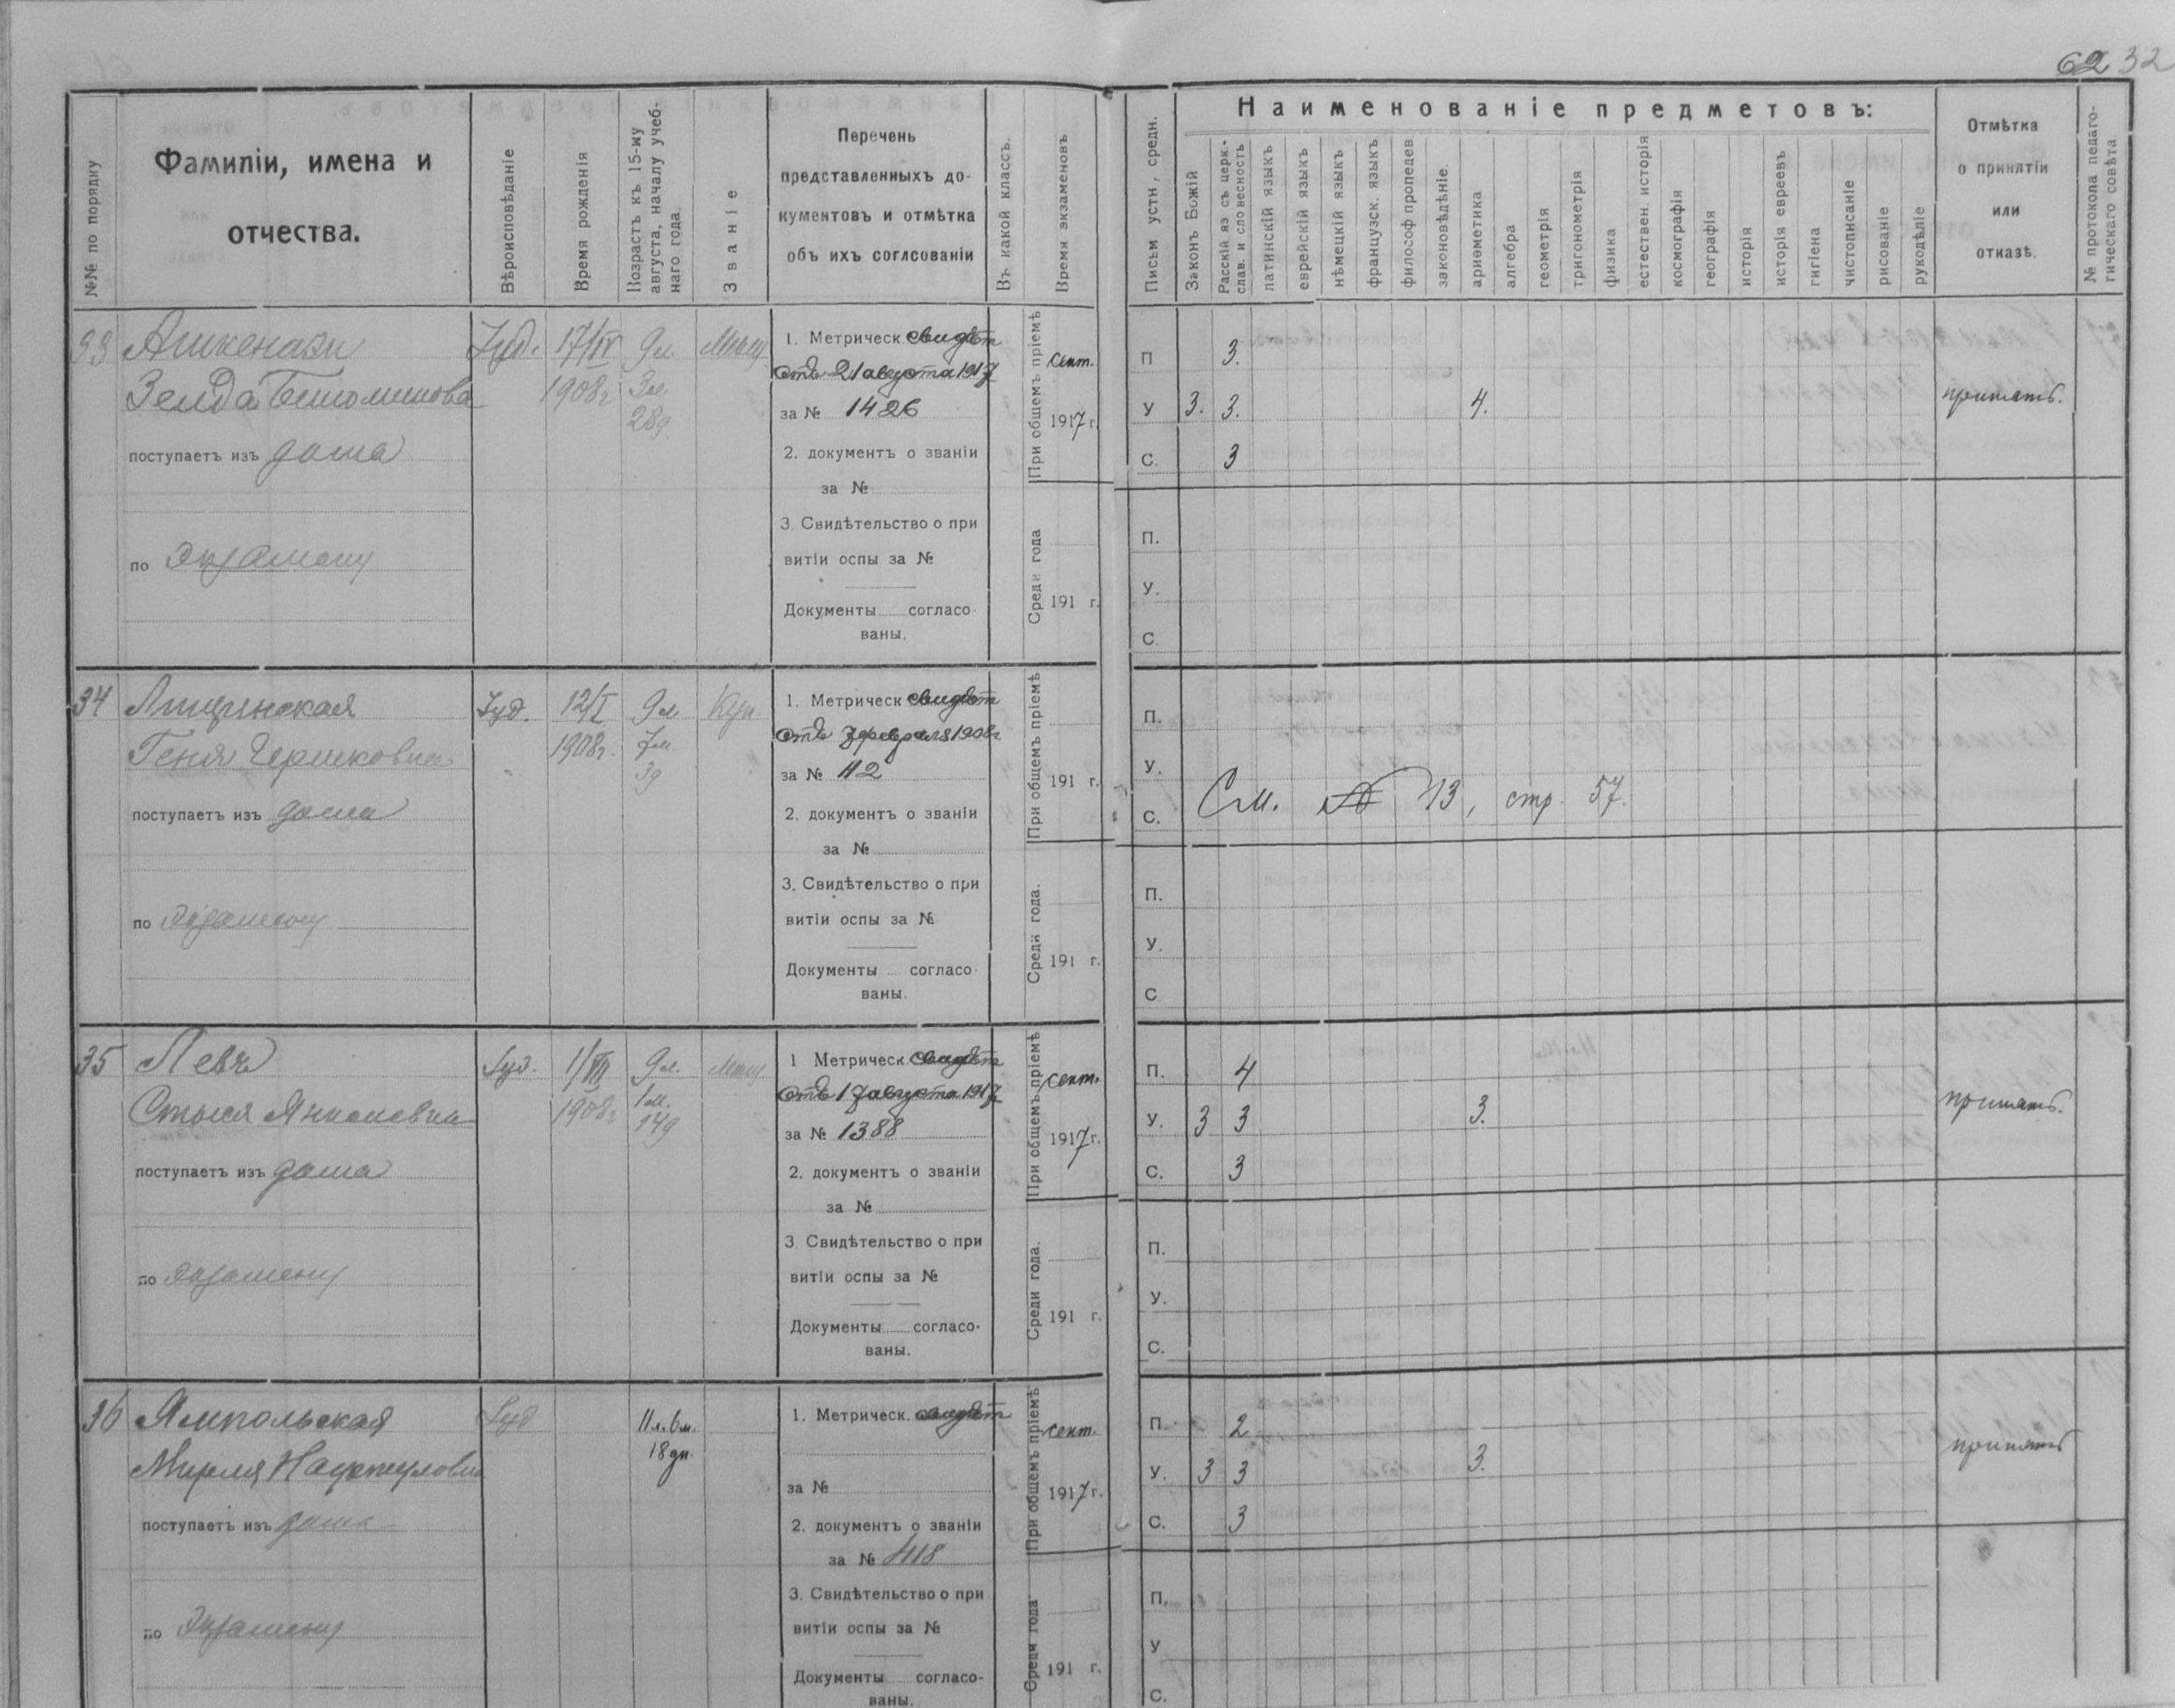 62 32
№№ по порядку
Фамиліи, имена и
отчества.
Вѣроисповѣданіе
Время рожденія
Возрастъ къ 15-му
августа, началу учеб-
наго года.
Званіе
Перечень
представленныхъ до-
кументовъ и отмѣтка
объ ихъ соглсованіи
Въ какой классъ.
Время экзаменовъ
Письм устн, средн.
Наименованіе предметовъ:
Законъ Божій
Расскій яз съ церк.-
слав. и словесность
латинскій языкъ
еврейскій языкъ
нѣмецкій языкъ
французск. языкъ
философ пропедев
законовѣдѣніе.
ариѳметика
алгебра
геометрія
тригонометрія
физика
естествен. исторія
космографія
географія
исторія
исторія евреевъ
гигіена
чистописаніе
рисованіе
рукодѣліе
Отмѣтка
о принятіи
или
отказѣ.
№ протокола педаго-
гическаго совѣта.
33 Ашкенази
Зелда
поступаетъ изъ дома
по экзамену
Іуд. 17/IV
1908г
9л.
3м.
28д
Мѣщ
1. Метрическ свидѣт
отъ 21 августа 1917
за № 1426
2. документъ о званіи
за №
3. Свидѣтельство о при
витіи оспы за №
Документы согласо
ваны.
При общемъ пріемѣ
сент.
1917 г.
Среди года
191 г.
П 3.
У 3. 3. 4.
С. 3
принять.
П.
У.
С.
34 Лищинская
Геня Гершковна
поступаетъ изъ дома
по экзамену
Іуд. 12/I
1908г.
9л.
7м.
3д
Куп.
1. Метрическ свидѣт
отъ февраля 1908г
за № 112
2. документъ о званіи
за №
3. Свидѣтельство о при
витіи оспы за №
Документы согласо
ваны.
При общемъ пріемѣ
191 г.
Среди года.
191 г.
П.
У.
С. См. № 13, стр. 57.
П.
У.
С
35 Левъ
Янкелевна
поступаетъ изъ дома
по экзамену
Іуд.
1908г
9л.
1м.
14д
Мѣщ
1 Метрическ. свидѣт
отъ 17 августа 1917
за № 1388
2. документъ о званіи
за №
3. Свидѣтельство о при
витіи оспы за №
Документы согласо-
ваны.
При общемъ пріемѣ
сент.
1917 г.
Среди года.
191 г.
П. 4
У. 3 3 3.
С. 3
принять.
П.
У.
С.
36 Ямпольская
Мирля
поступаетъ изъ дома
по экзамену
Іуд
11 л. 6 м.
18 дн.
1. Метрическ. свидѣт
за №
2. документъ о званіи
за № 418
3. Свидѣтельство о при
витіи оспы за №
Документы согласо-
ваны.
При общемъ пріемѣ
сент.
1917 г.
Среди года
191 г.
П. 2
У. 3 3 3.
С. 3
принять
П.
У
С.